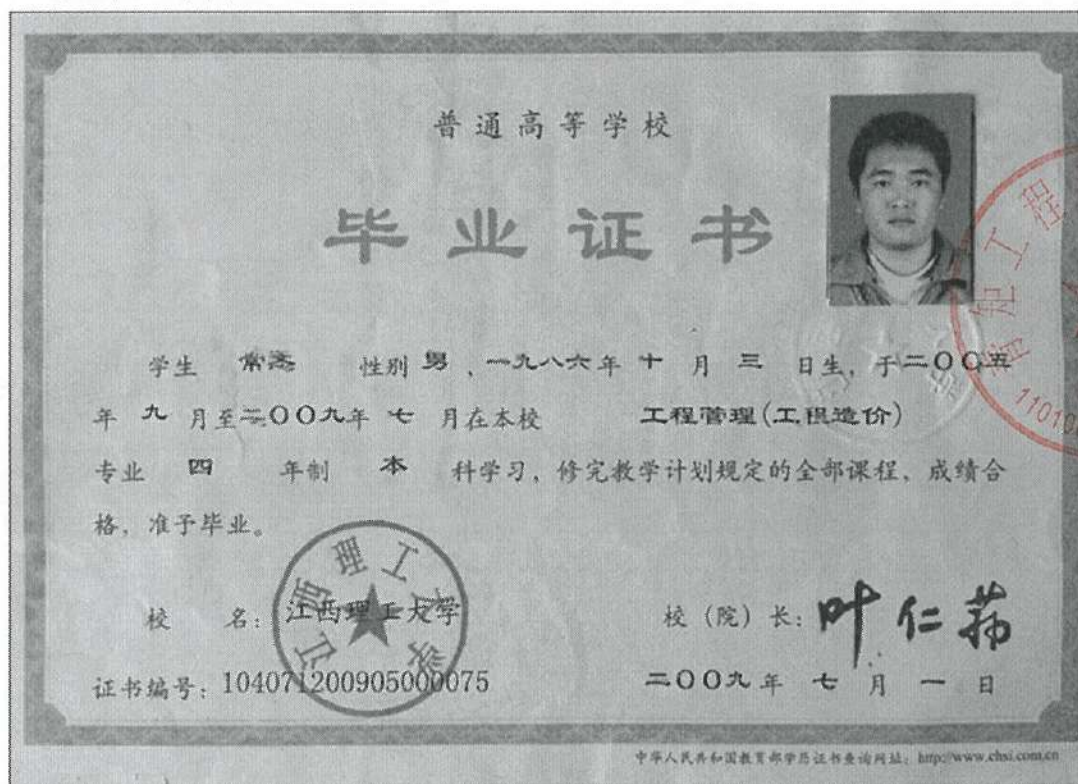 普通高等学校
毕业证书
学生 常亮 性别 男 ，一九八六年 十 月 三 日生，于二〇〇五
年 九 月至二〇〇九年 七 月在本校 工程管理(工程造价)
专业 四 年制 本 科学习，修完教学计划规定的全部课程，成绩合
格，准予毕业。
江西理工大学
校 名：江西理工大学
校（院）长：叶仁荪
证书编号：104071200905000075
二〇〇九年 七 月 一 日
中华人民共和国教育部学历证书查询网址：http://www.chsi.com.cn
工程
11010